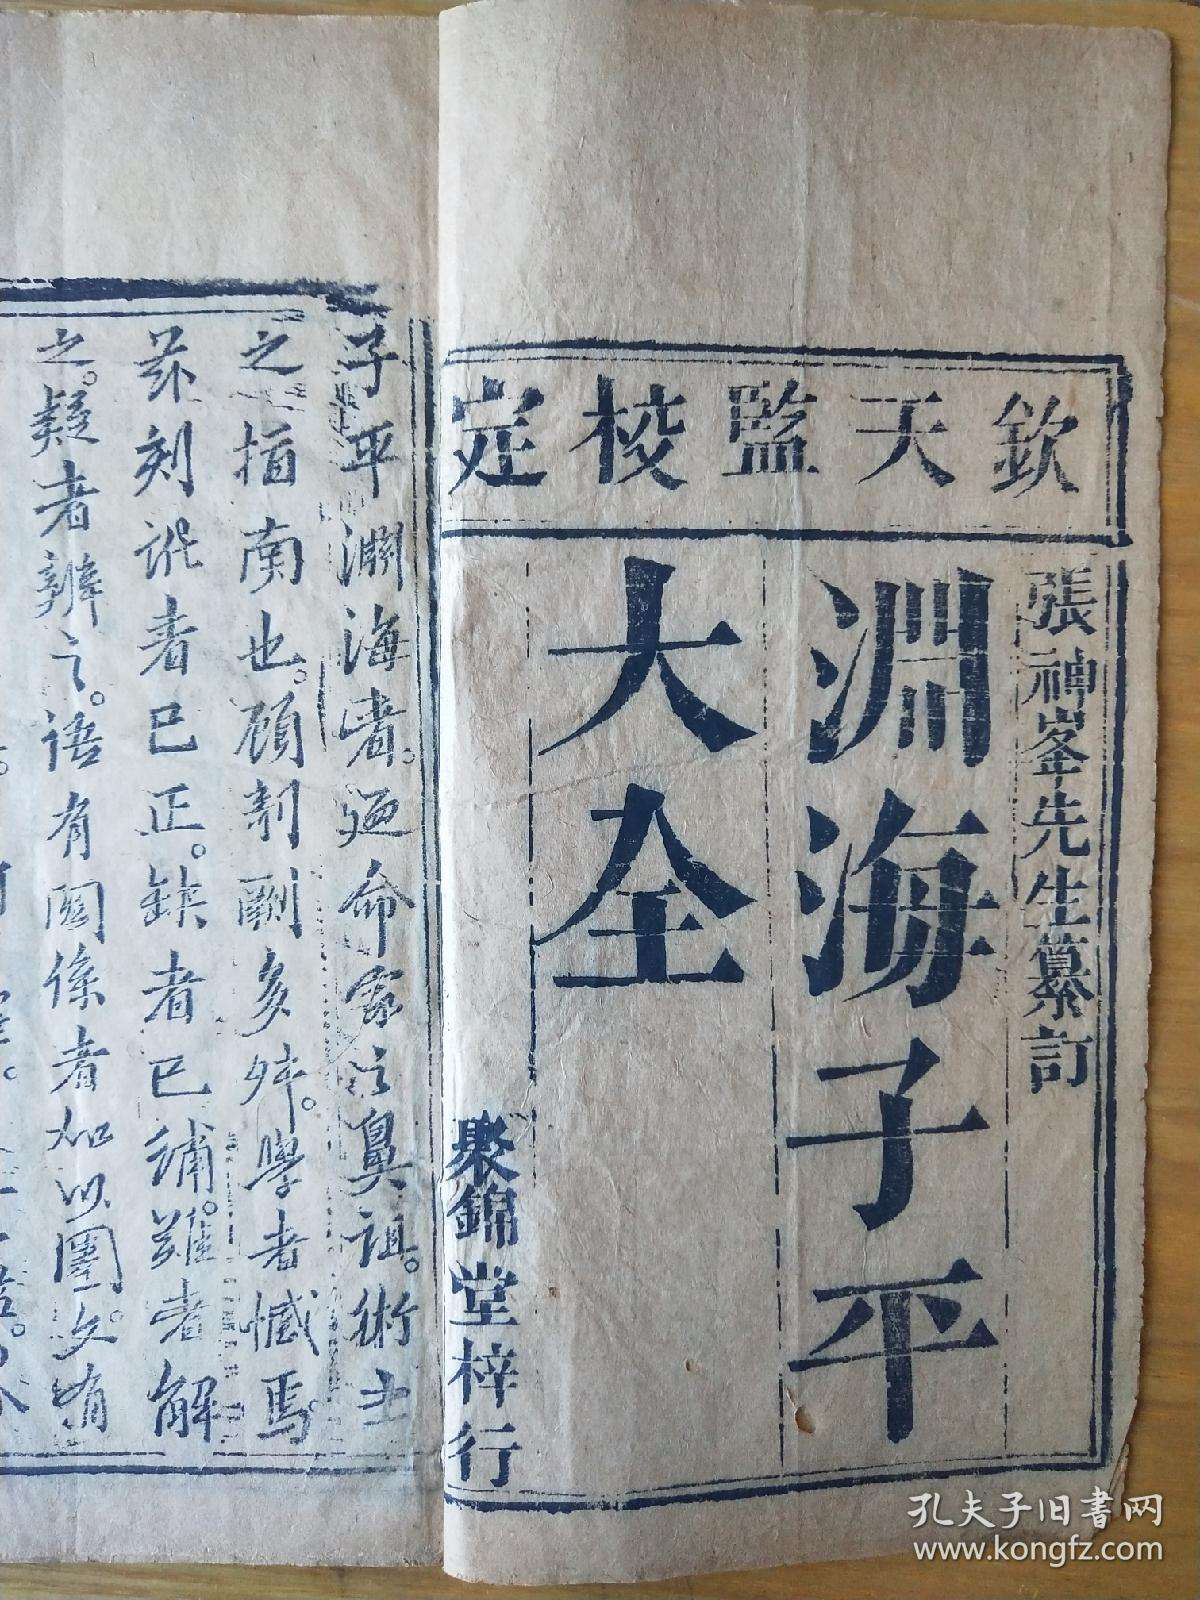 欽天監校定
張神峯先生纂訂
淵海子平
大全
聚錦堂梓行
子平淵海者。廼命家之鼻祖。術士
之指南也。顧剞劂多舛。學者憾焉。
茲刻訛者已正。缺者已補。難者解
之。疑者辨之。語有関係者加以圈。文有
孔夫子旧书网
www.kongfz.com